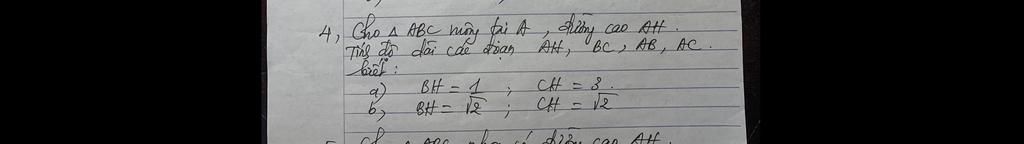 4, Cho Δ ABC vuông tại A, đường cao AH.
Tính độ dài các đoạn AH, BC, AB, AC.
biết:
a) BH = 1 ; CH = 3.
b) BH = √2 ; CH = √2
Δ ABC có đường cao AH.